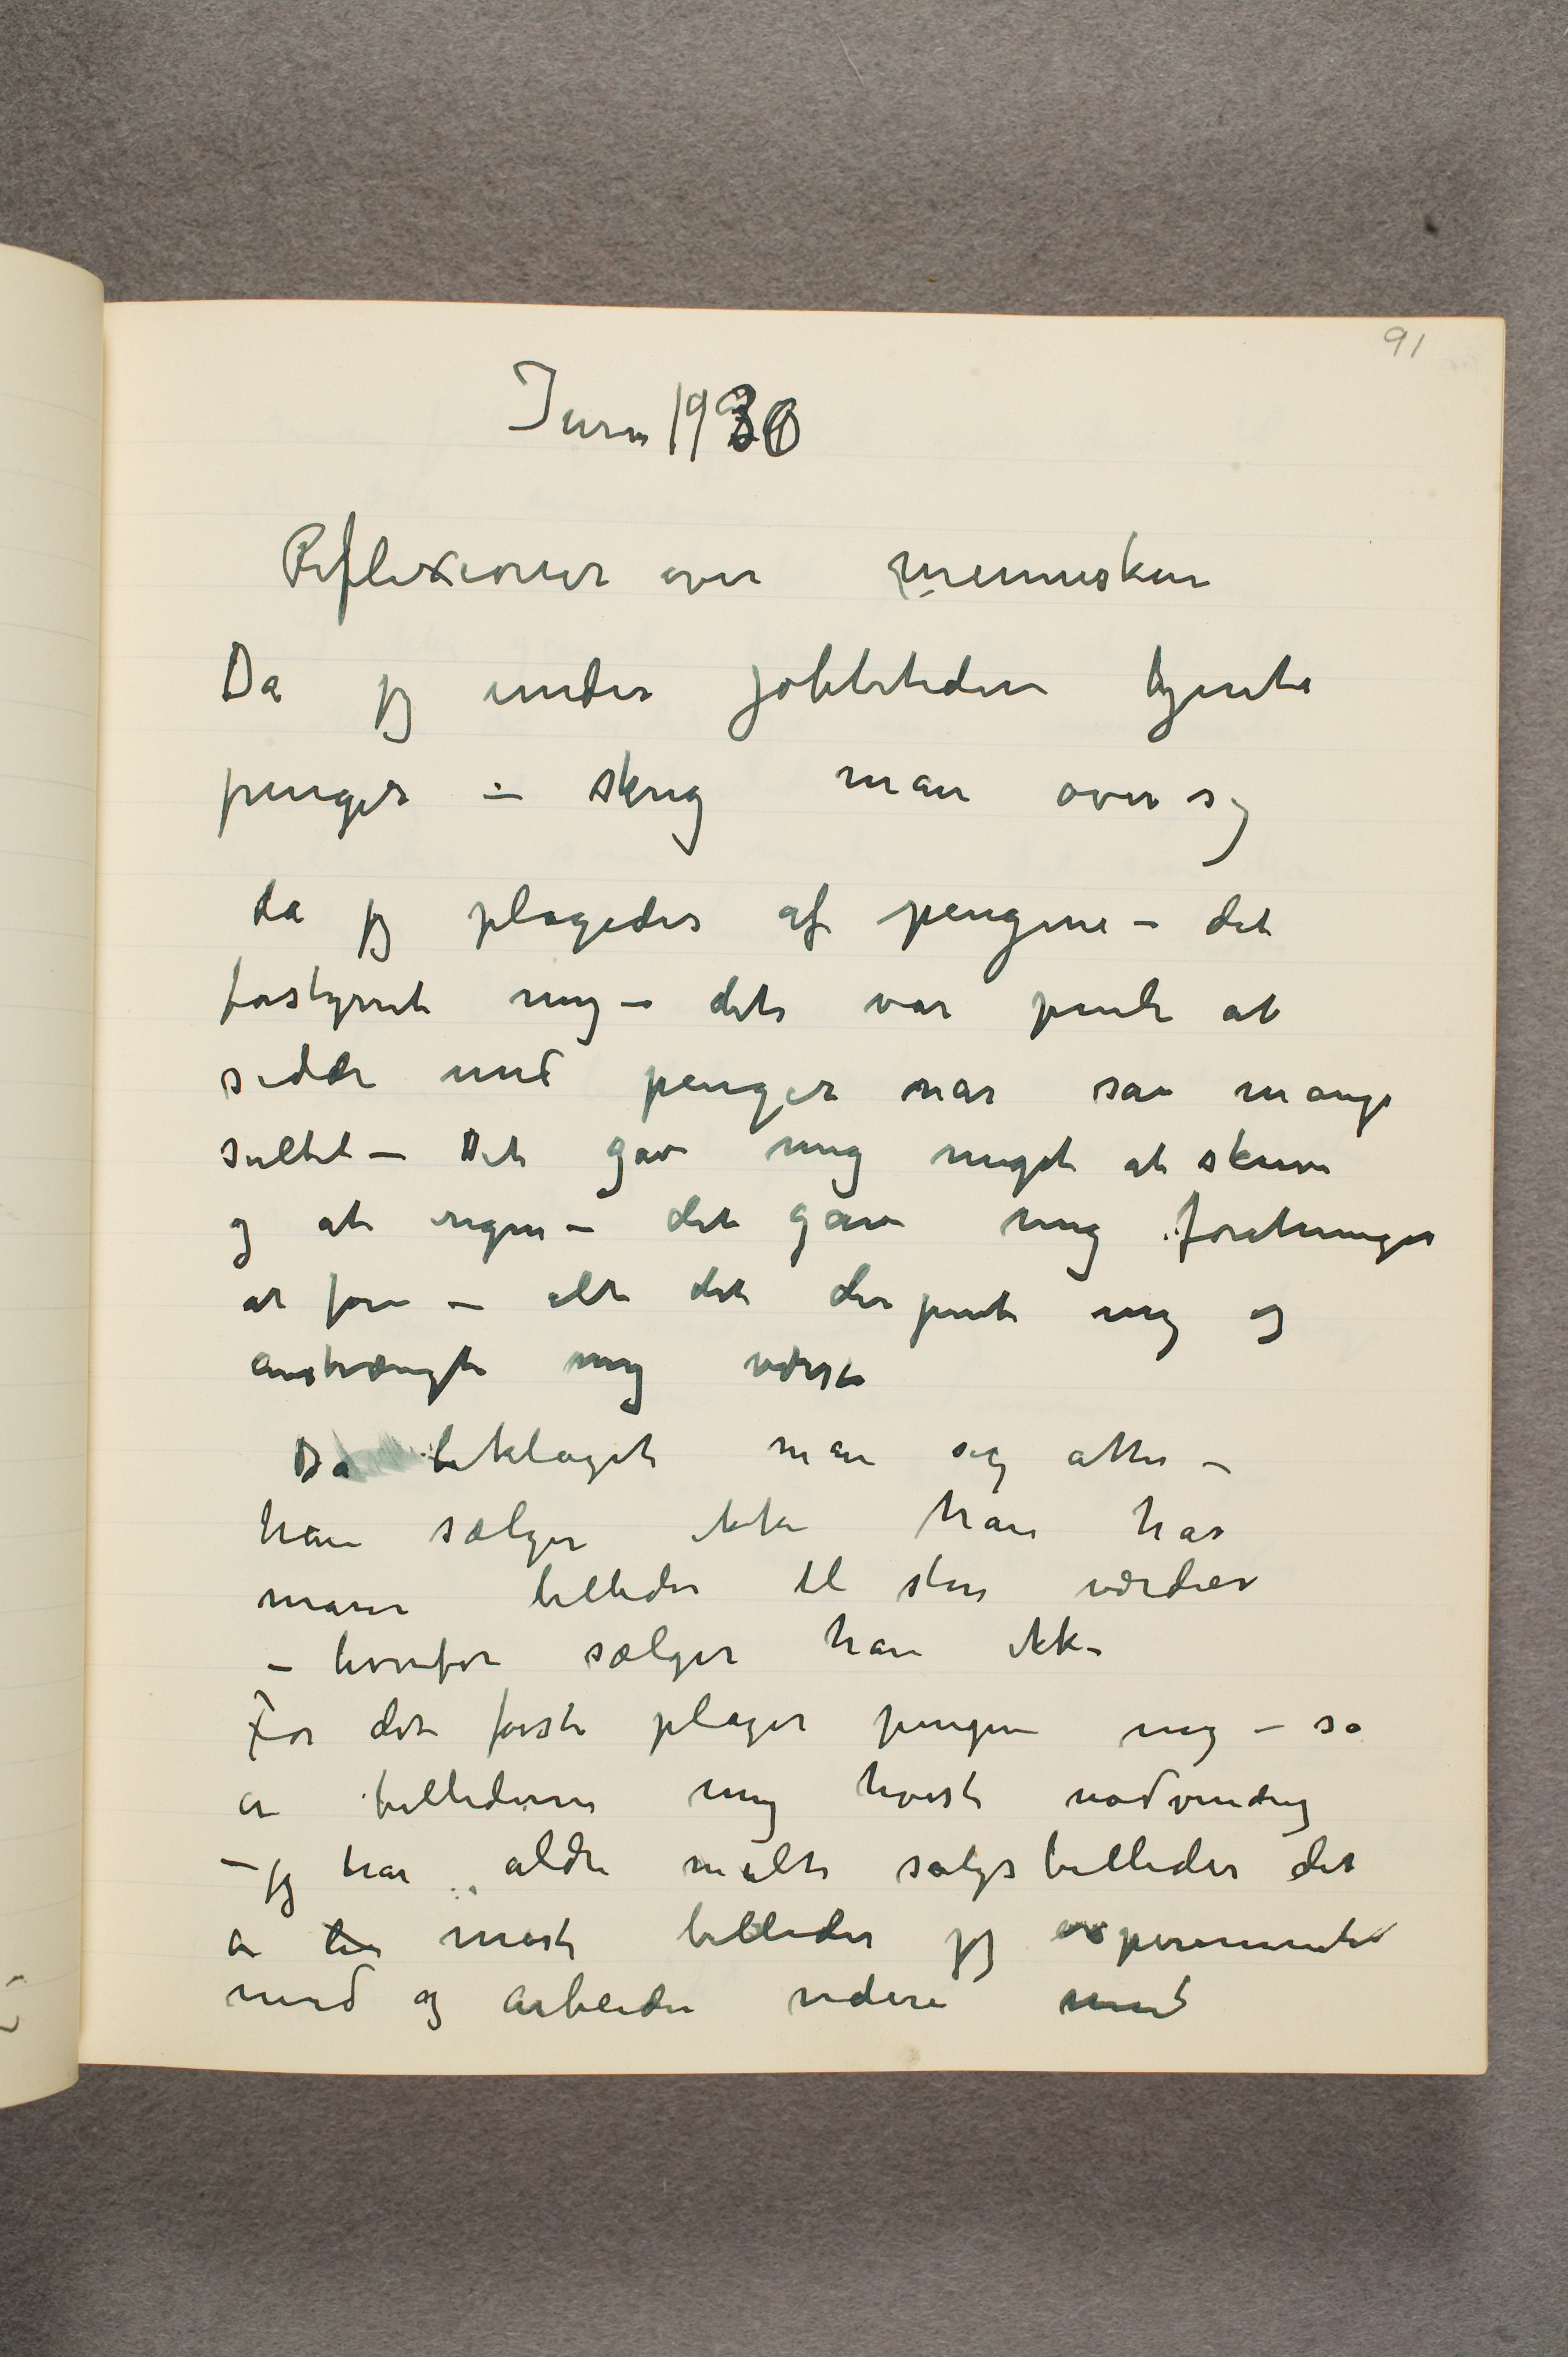 91
Juni 1930
Reflexioner over mennesken
Da jeg under jobbetiden tjente
penger – skreg man over sig
da jeg plagedes af pengene – det
forstyrret mig – det var pinli at
sidde med penger når så mange
sultet – Det gav mig meget at skrive
og at regne – det gav mig forretninger
at føre – alt det der pinte mig og
anstrængte mig værst
Da beklaget man sig atter –
han sælger ikke han har
masser billeder til store værdier
– hvorfor sælger han ikke
For det første plager pengene mig – så
er billederne mig høist nødvendig
– jeg har aldri malt salgsbilleder det
er mest billeder jeg experimenter
med og arbeider videre med